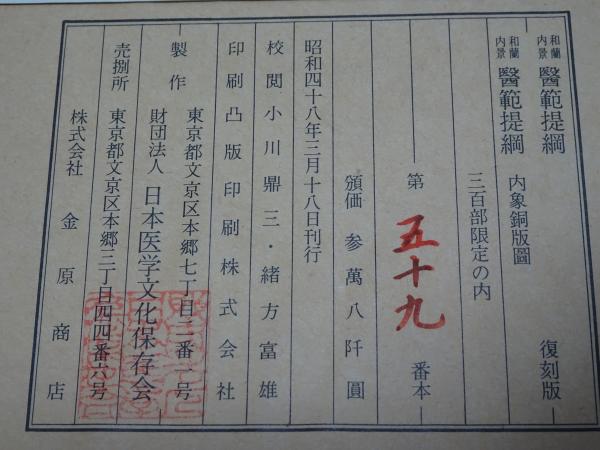 和蘭内景 醫範提綱 復刻版
和蘭内景 醫範提綱 内象銅版圖
三百部限定の内
第 五十九 番本
頒価 参萬八阡圓
昭和四十八年三月十八日刊行
校閲 小川鼎三・緒方富雄
印刷 凸版印刷株式会社
製作 東京都文京区本郷七丁目三番一号
財団法人 日本医学文化保存会
売捌所 東京都文京区本郷三丁目四四番六号
株式会社 金原商店